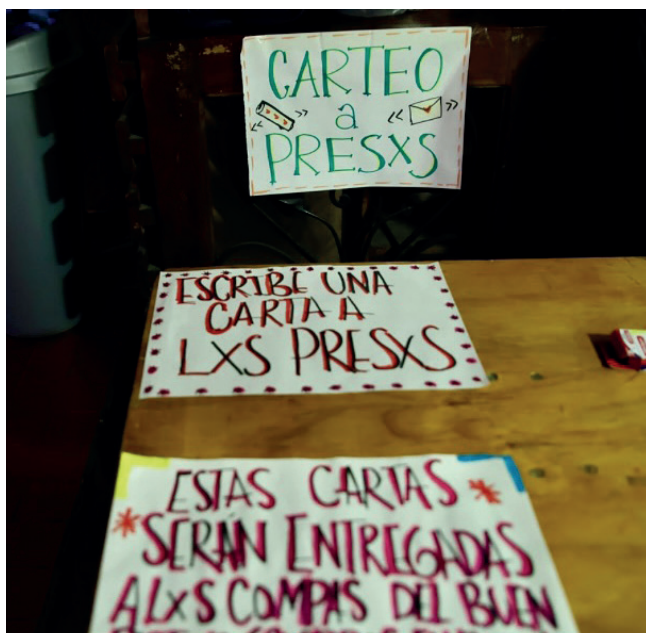 CARTEO
a
PRESXS
ESCRIBE UNA
CARTA A
LXS PRESXS
ESTAS CARTAS
SERÁN ENTREGADAS
A LXS COMPAS DEL BUEN